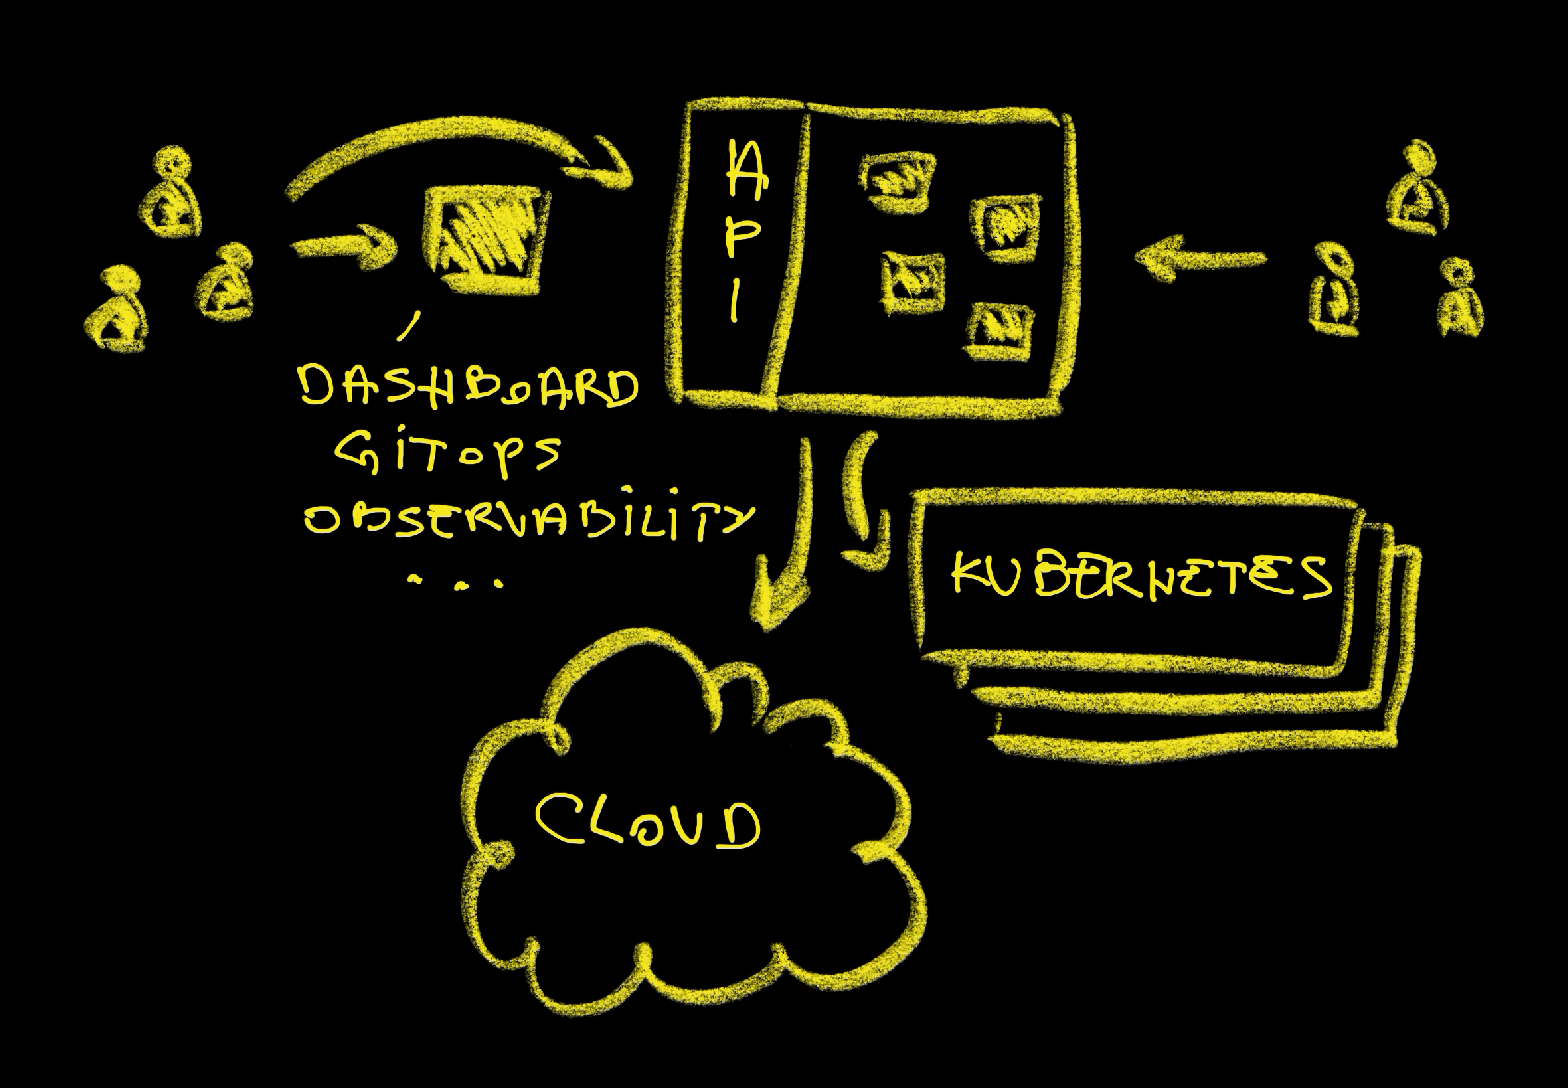 API
DASHBOARD
GITOPS
OBSERVABILITY
...
KUBERNETES
CLOUD